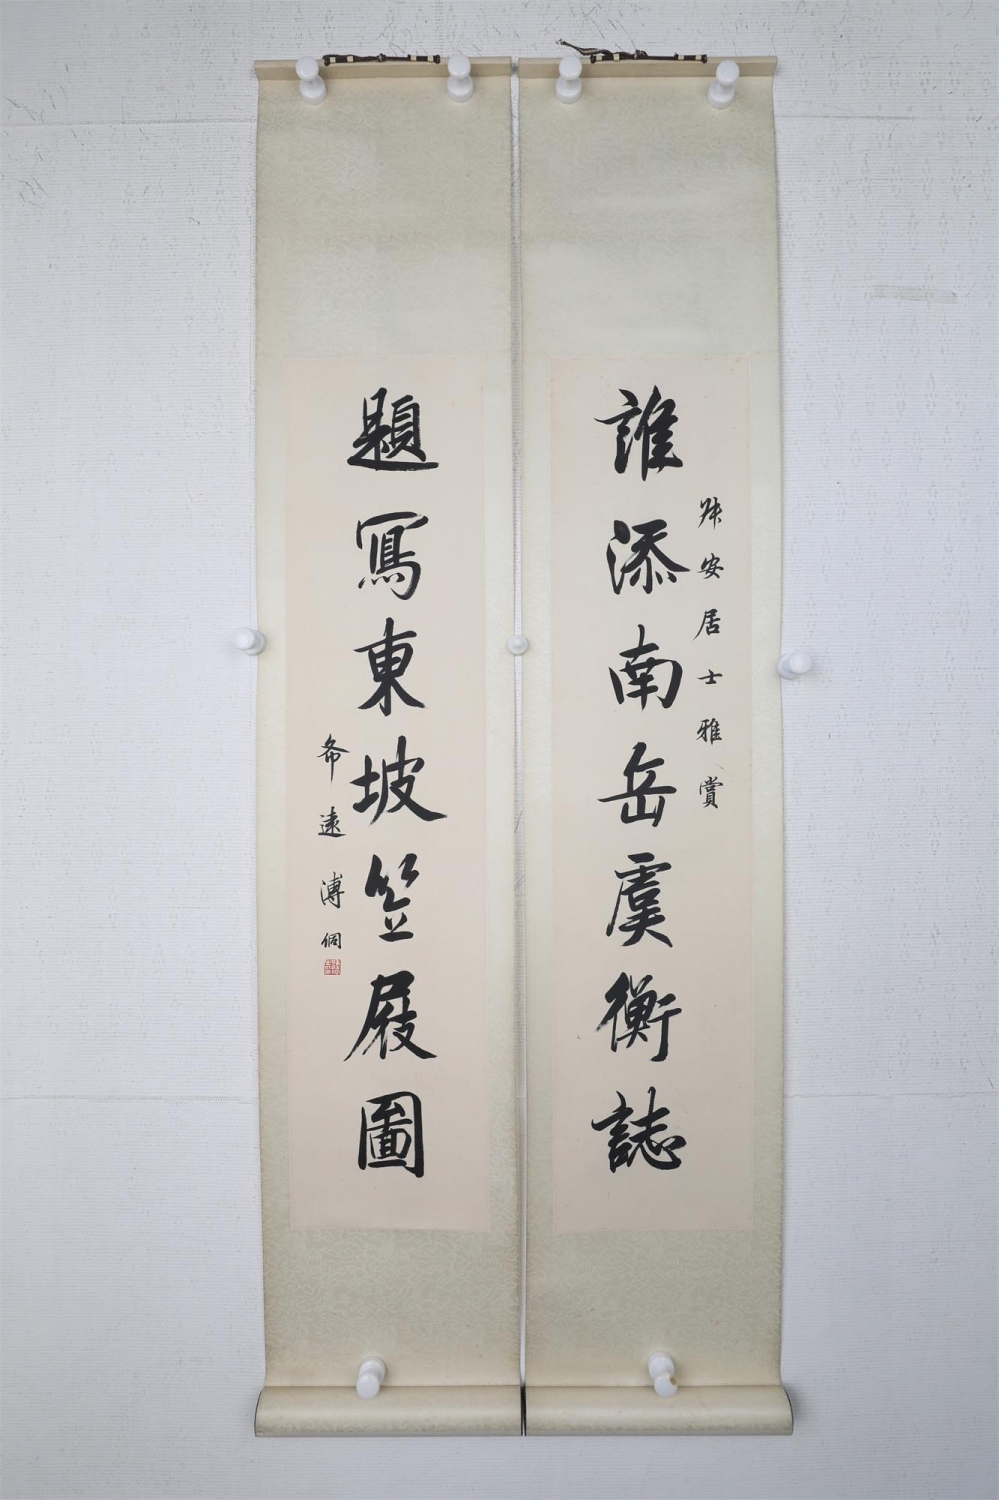 誰添南岳虞衡誌
安居士雅賞
題寫東坡笠屐圖
遠溥侗